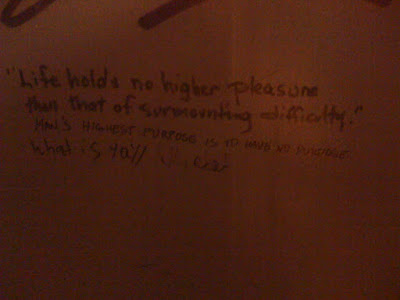 "Life holds no higher pleasure
than that of surmounting difficulty."
MAN'S HIGHEST PURPOSE IS TO HAVE NO PURPOSE
What is ya'll